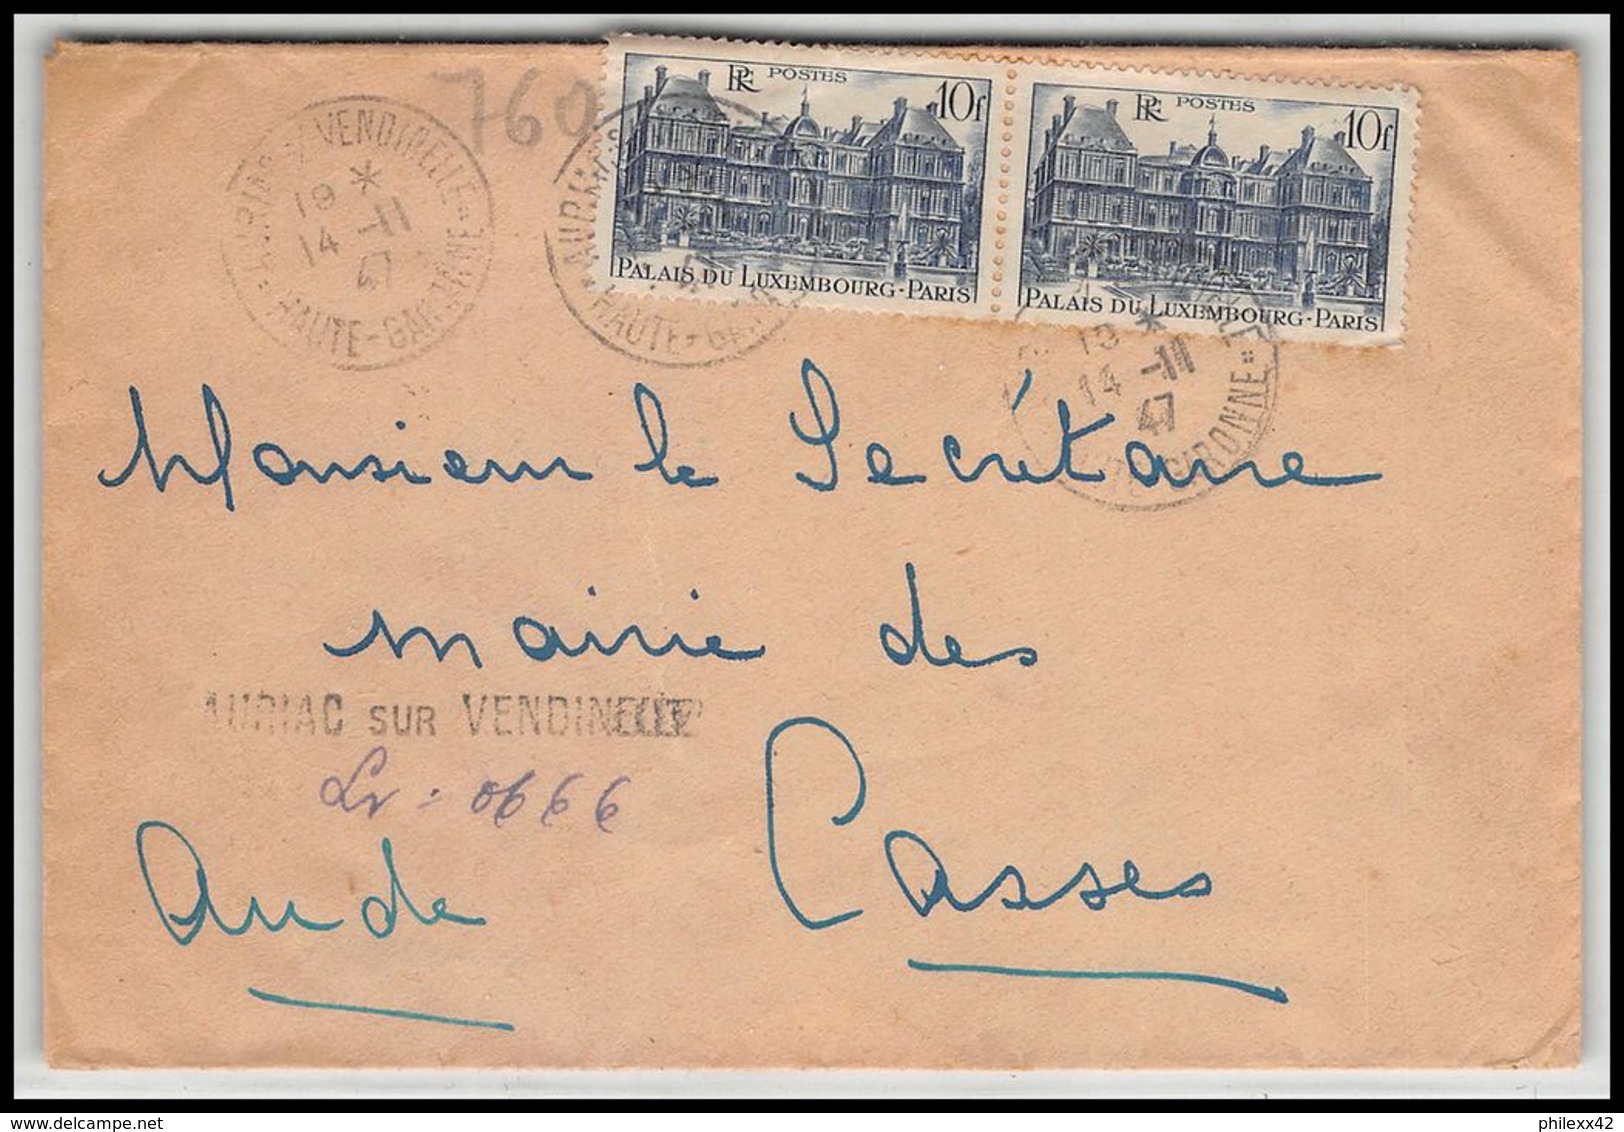 760
RF POSTES 10f
PALAIS DU LUXEMBOURG-PARIS
RF POSTES 10f
PALAIS DU LUXEMBOURG-PARIS
AURIAC S/ VENDINELLE
19 *
14 -11
47
HAUTE-GARONNE
AURIAC
HAUTE-
19 *
14 -11
47
GIRONNE
Monsieur le Secrétaire
mairie des
AURIAC SUR VENDINELLE
Lr : 0666
Casses
Aude
philexx42